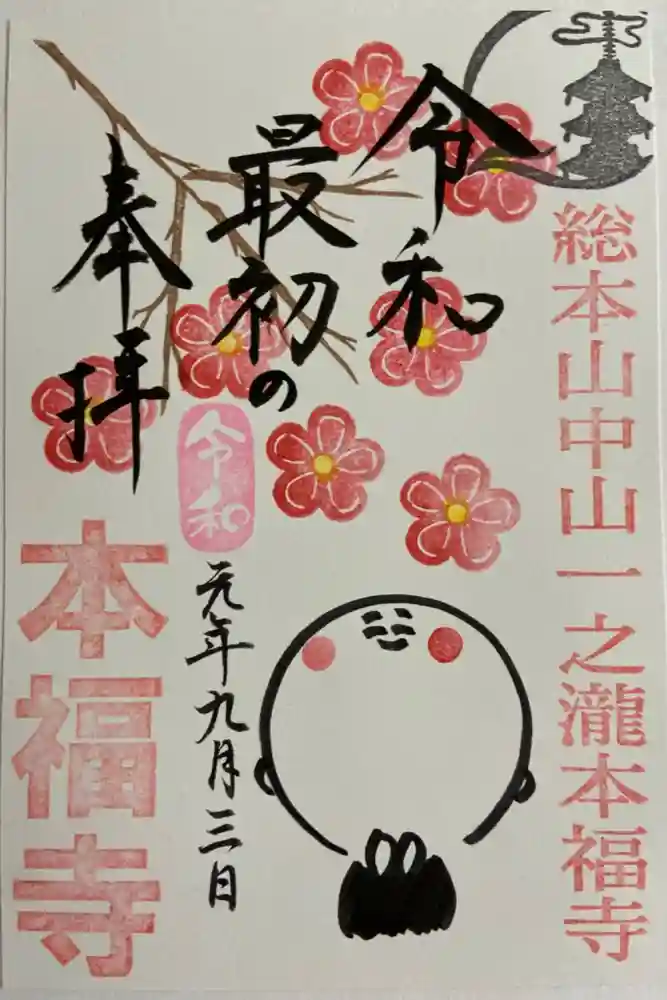 総本山中山一之瀧本福寺
令和
最初の
令和
元年九月三日
奉拝
本福寺